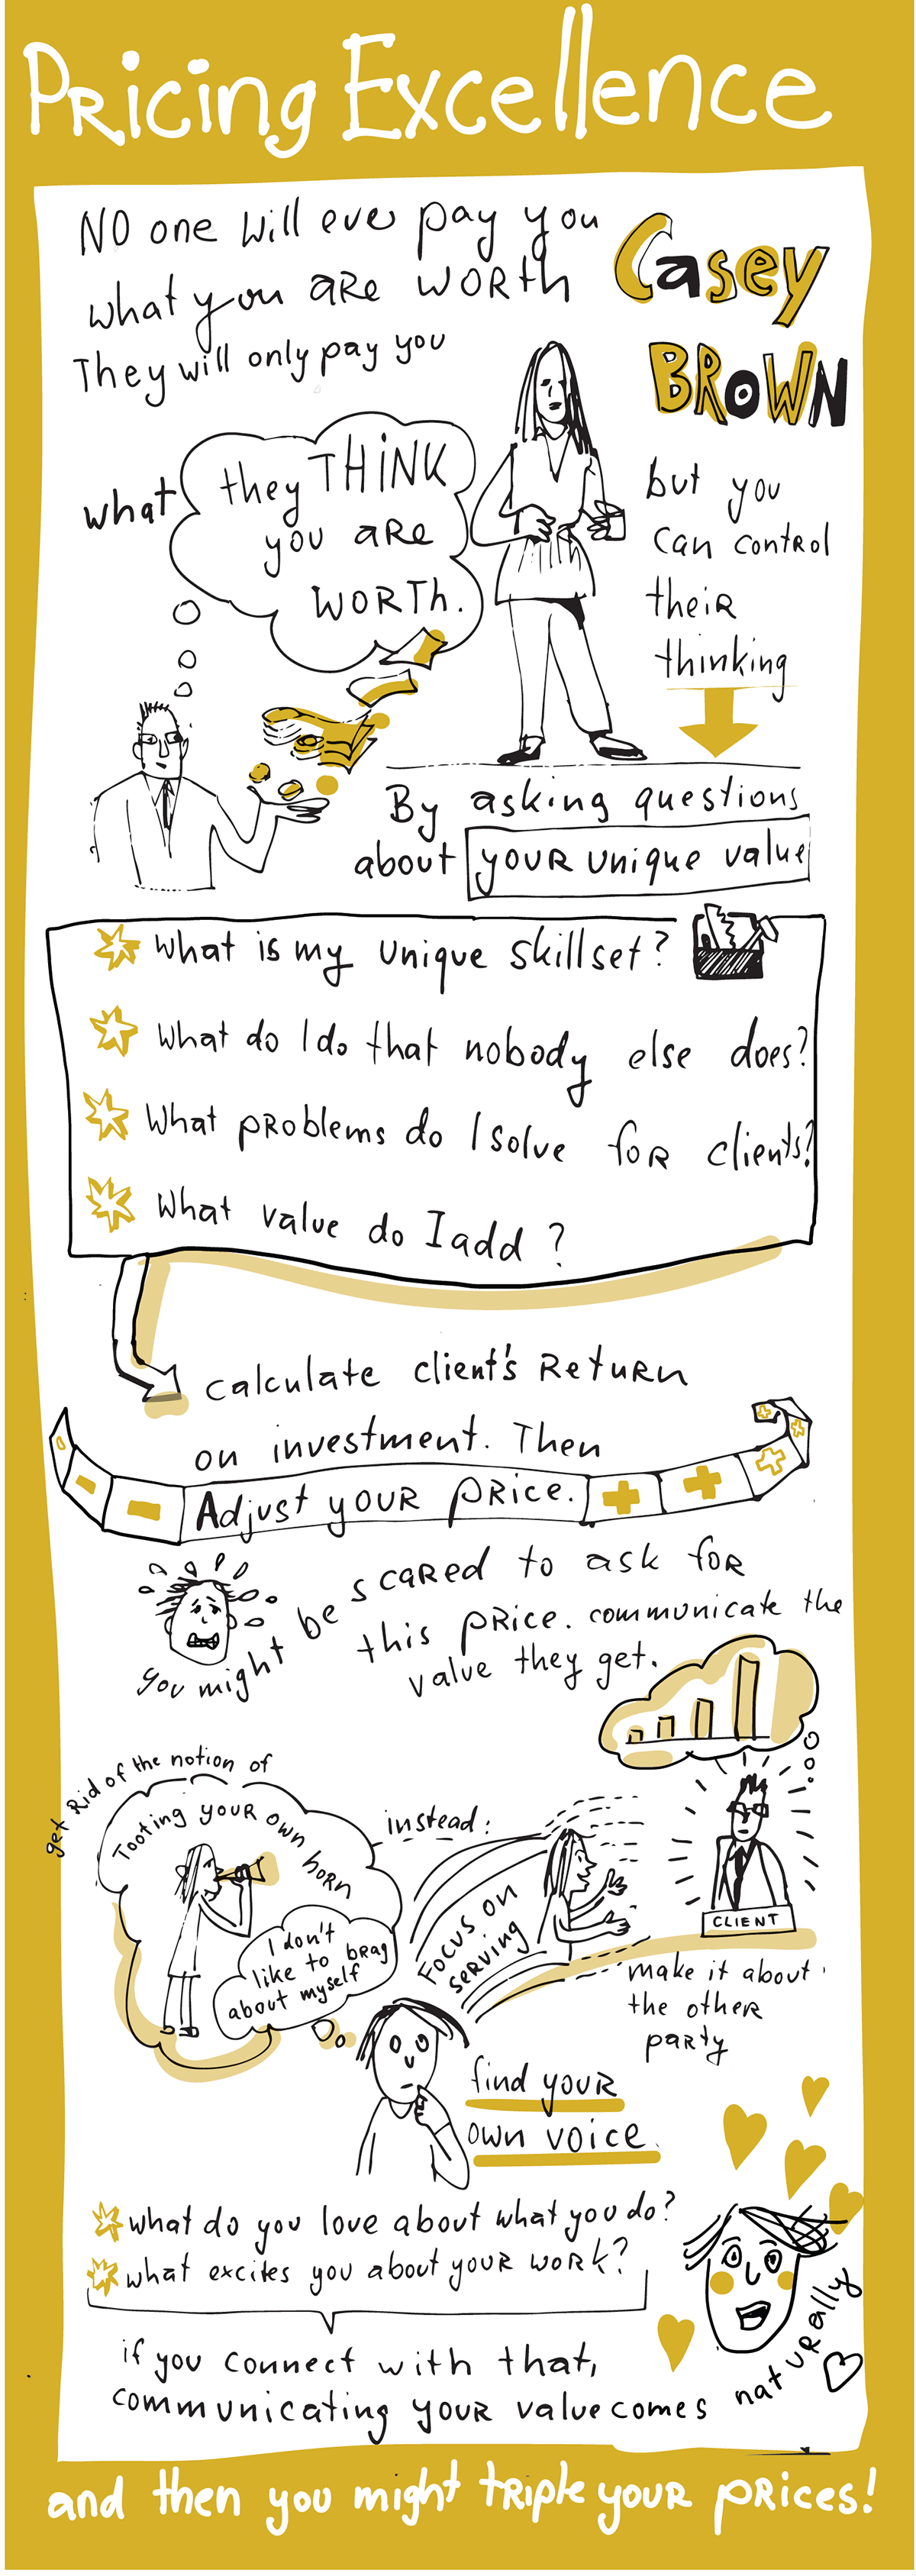 Pricing Excellence
No one will ever pay you
what you are worth
They will only pay you
what
they THINK
you are
worth.
Casey
BROWN
but you
can control
their
thinking
By asking questions
about your unique value
What is my unique skillset?
What do I do that nobody else does?
What problems do I solve for clients?
What value do I add?
calculate client's return
on investment. Then
Adjust your price.
you might be scared to ask for
this price. communicate the
value they get.
get rid of the notion of
Tooting your own horn
I don't
like to brag
about myself
instead:
Focus on
serving
CLIENT
make it about
the other
party
find your
own voice.
what do you love about what you do?
what excites you about your work?
if you connect with that,
communicating your value comes naturally
and then you might triple your prices!